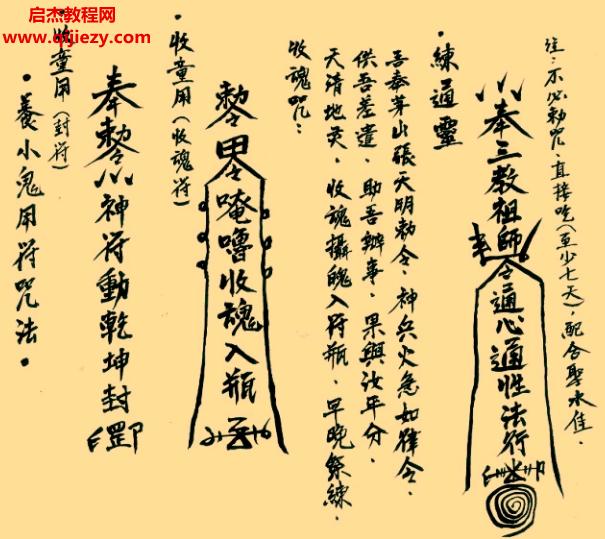 启杰教程网
www.qijiezy.com
·養小鬼用符咒法。
·收童用(封符)
奉勅令神符動乾坤封
·收童用(收魂符)
唵嚕收魂入瓶
收魂咒：
天清地灵，收魂攝魄入符瓶，早晚祭練，
供吾差遣，助吾辦事，果與汝年分，
吾奉茅山張天明勅令，神兵火急如律令，
·練通靈
奉三教祖師令通心通性法行
注：不必勅咒，直接吃(至少七天)，配合聖水佳。